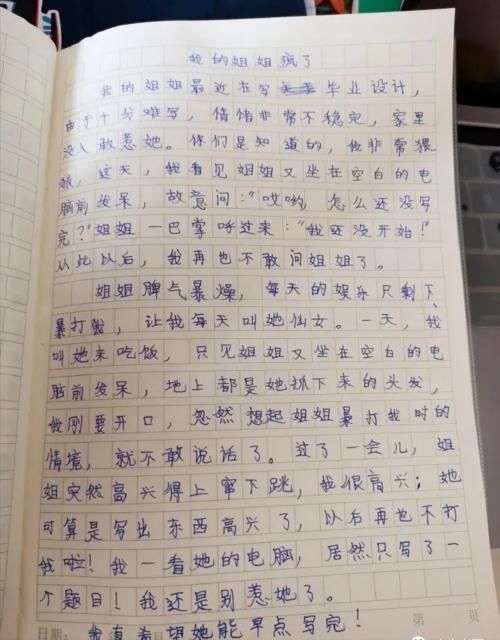 我的姐姐疯了
我的姐姐最近在写毕业设计，
由于十分难写，情绪非常不稳定，家里
没人敢惹她。你们是知道的，我非常猥
琐，这天，我看见姐姐又坐在空白的电
脑前发呆，故意问：“哎哟，怎么还没写
完？”姐姐一巴掌呼过来：“我还没开始！”
从此以后，我再也不敢问姐姐了。
姐姐脾气暴燥，每天的娱乐只剩下
暴打我，让我每天叫她仙女。一天，我
叫她来吃饭，只见姐姐又坐在空白的电
脑前发呆，地上都是她抓下来的头发，
我刚要开口，忽然想起姐姐暴打我时的
情境，就不敢说话了。过了一会儿，姐
姐突然高兴得上窜下跳，我很高兴；她
可算是写出东西高兴了，以后再也不打
我啦！我一看她的电脑，居然只写了一
个题目！我还是别惹她了。
我真希望她能早点写完！
第 页
日期：